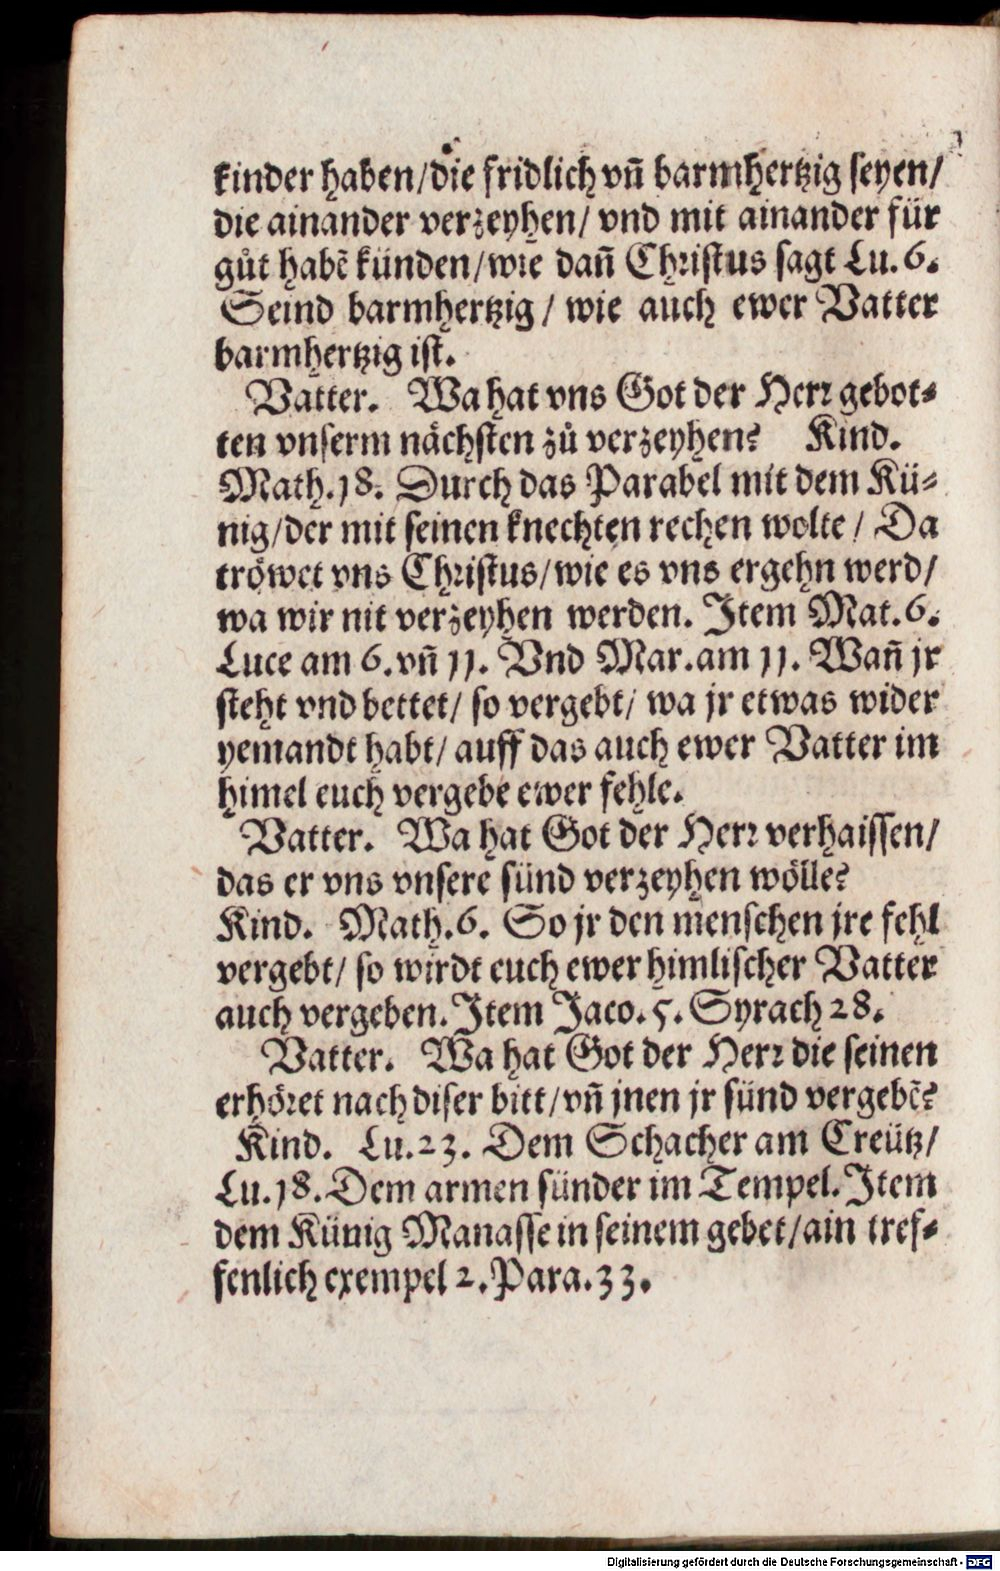 kinder haben/die fridlich vñ barmhertzig seyen/
die ainander verzeyhen/ vnd mit ainander für
gůt habẽ künden/wie dañ Christus sagt Lu.6.
Seind barmhertzig / wie auch ewer Vatter
barmhertzig ist.
Vatter. Wa hat vns Got der Herr gebot⸗
ten vnserm nächsten zů verzeyhen? Kind.
Math.18. Durch das Parabel mit dem Kü⸗
nig/der mit seinen knechten rechen wolte / Da
tröwet vns Christus/wie es vns ergehn werd/
wa wir nit verzeyhen werden. Item Mat.6.
Luce am 6.vñ 11. Vnd Mar.am 11. Wañ jr
steht vnd bettet/ so vergebt/ wa jr etwas wider
yemandt habt/ auff das auch ewer Vatter im
himel euch vergebe ewer fehle.
Vatter. Wa hat Got der Herr verhaissen/
das er vns vnsere sünd verzeyhen wölle?
Kind. Math.6. So jr den menschen jre fehl
vergebt/ so wirdt euch ewer himlischer Vatter
auch vergeben. Item Jaco.5. Syrach 28.
Vatter. Wa hat Got der Herr die seinen
erhöret nach diser bitt/vñ jnen jr sünd vergebẽ?
Kind. Lu.23. Dem Schacher am Creütz/
Lu.18. Dem armen sünder im Tempel. Item
dem Künig Manasse in seinem gebet/ain tref⸗
fenlich exempel 2.Para.33.
Digitalisierung gefördert durch die Deutsche Forschungsgemeinschaft - DFG